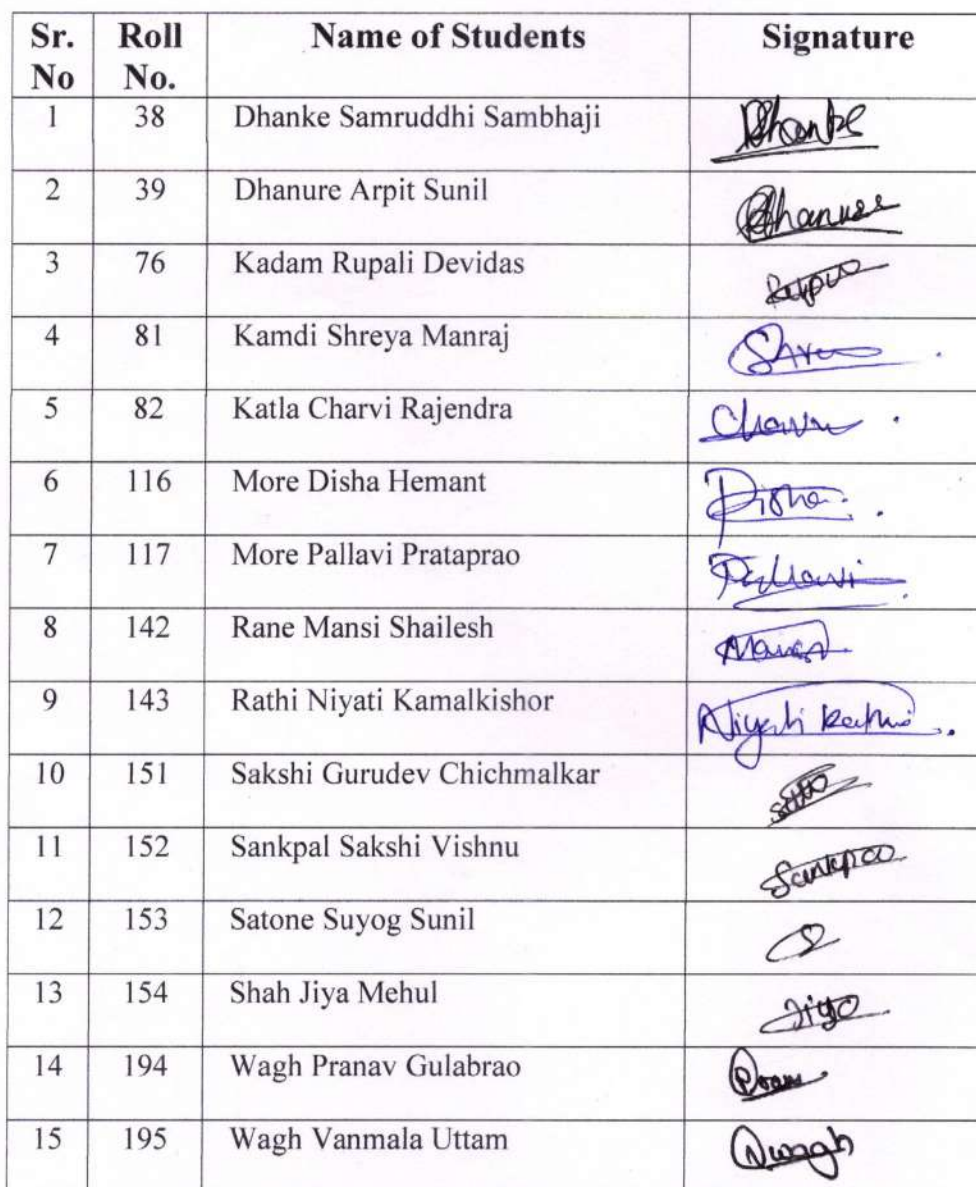 Sr. No Roll No. Name of Students Signature
1 38 Dhanke Samruddhi Sambhaji Dhanke
2 39 Dhanure Arpit Sunil Dhanure
3 76 Kadam Rupali Devidas
4 81 Kamdi Shreya Manraj
5 82 Katla Charvi Rajendra
6 116 More Disha Hemant Disha
7 117 More Pallavi Prataprao Pallavi
8 142 Rane Mansi Shailesh
9 143 Rathi Niyati Kamalkishor Niyati Rathi
10 151 Sakshi Gurudev Chichmalkar
11 152 Sankpal Sakshi Vishnu
12 153 Satone Suyog Sunil
13 154 Shah Jiya Mehul Jiya
14 194 Wagh Pranav Gulabrao
15 195 Wagh Vanmala Uttam